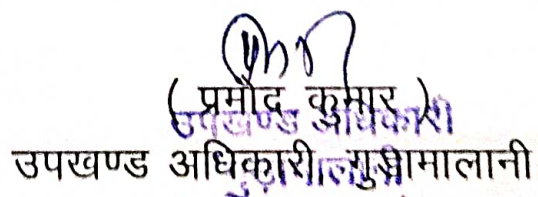 ( प्रमोद कुमार )
उपखण्ड अधिकारी
उपखण्ड अधिकारी गुड़ामालानी